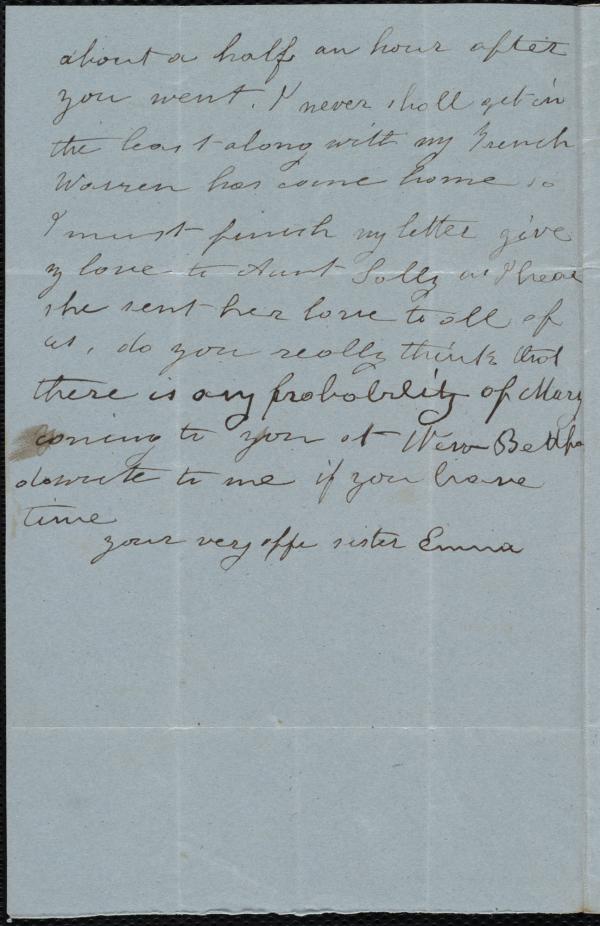 about a half an hour after
you went. I never shall get in
the least along with my French
Warren has come home so
I must finish my letter give
my love to Aunt Sally as I hear
she sent her love to all of
us, do you really think that
there is any probability of Mary
coming to you at New
do write to me if you have
time
your very affe sister Emma